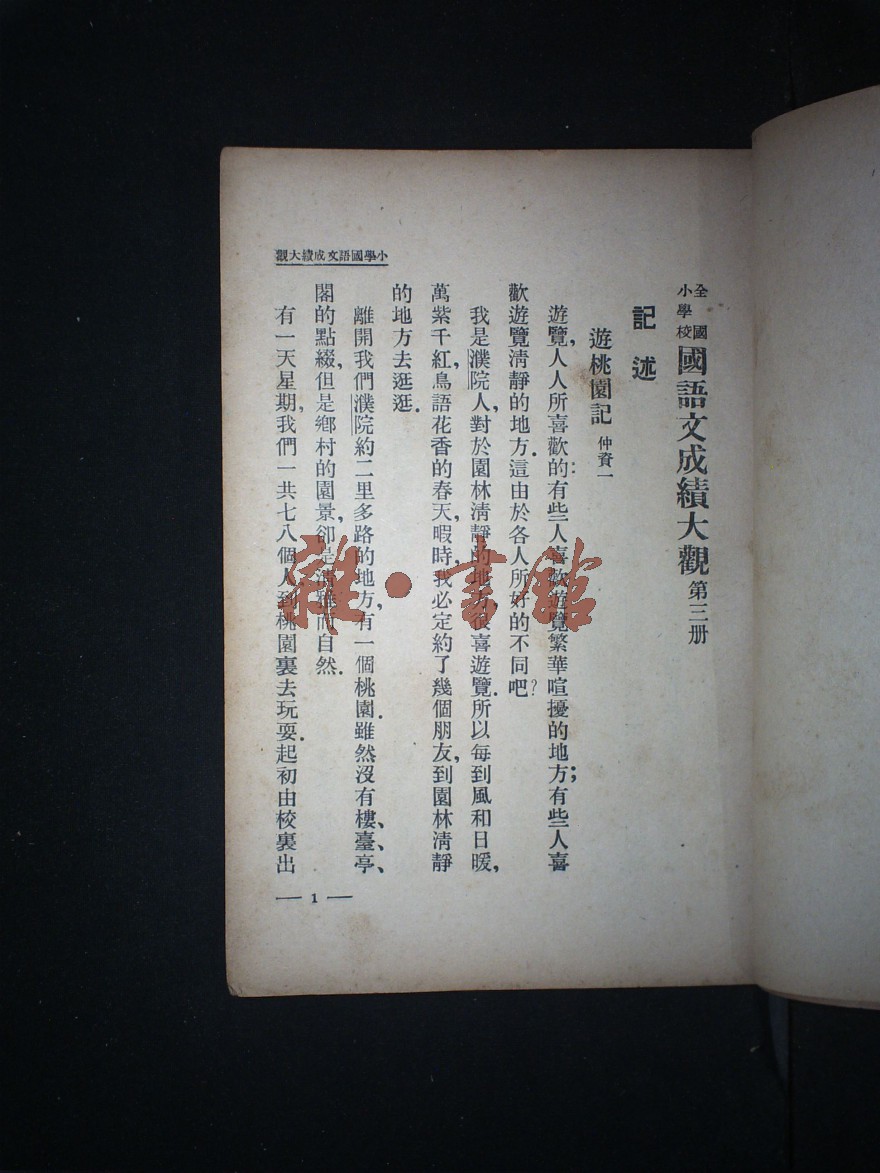 全國小學校國語文成績大觀 第三册
記述
遊桃園記 仲資一
遊覽，人人所喜歡的：有些人喜歡遊覽繁華喧擾的地方；有些人喜
歡遊覽清靜的地方．這由於各人所好的不同吧？
我是濮院人，對於園林清靜的地方，很喜遊覽．所以每到風和日暖，
萬紫千紅，鳥語花香的春天，暇時，我必定約了幾個朋友，到園林清靜
的地方去逛逛．
離開我們濮院約二里多路的地方，有一個桃園．雖然沒有樓、臺、亭、
閣的點綴，但是鄉村的園景，卻是清雅而自然．
有一天星期，我們一共七八個人，到桃園裏去玩耍．起初由校裏出
小學國語文成績大觀
— 1 —
雜·書館